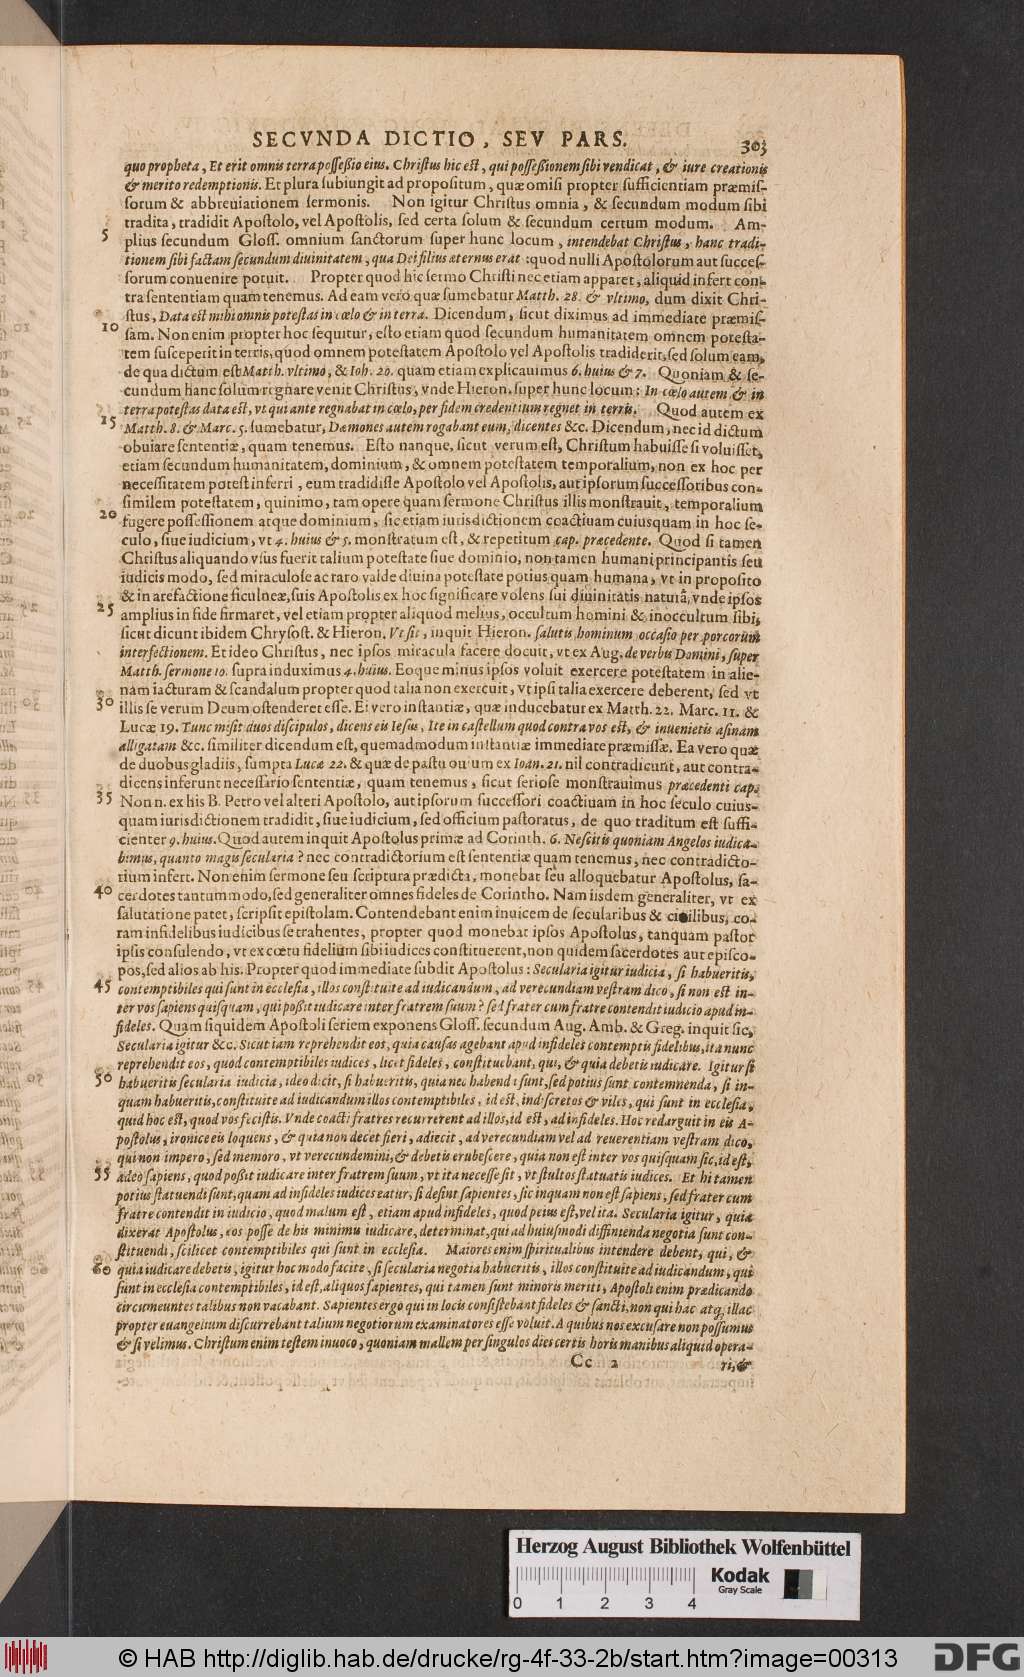 SECVNDA DICTIO, SEV PARS. 303
quo propheta, Et erit omnis terra possessio eius. Christus hic est, qui possessionem sibi vendicat, & iure creationis
& merito redemptionis. Et plura subiungit ad propositum, quæ omisi propter sufficientiam præmis-
sorum & abbreuiationem sermonis. Non igitur Christus omnia, & secundum modum sibi
tradita, tradidit Apostolo, vel Apostolis, sed certa solum & secundum certum modum. Am-
5 plius secundum Gloss. omnium sanctorum super hunc locum, intendebat Christus, hanc tradi-
tionem sibi factam secundum diuinitatem, qua Dei filius æternus erat: quod nulli Apostolorum aut succes-
sorum conuenire potuit. Propter quod hic sermo Christi nec etiam apparet, aliquid infert con-
tra sententiam quam tenemus. Ad eam verò quæ sumebatur Matth. 28. & vltimo, dum dixit Chri-
stus, Data est mihi omnis potestas in cœlo & in terra. Dicendum, sicut diximus ad immediate præmis-
10 sam. Non enim propter hoc sequitur, esto etiam quod secundum humanitatem omnem potesta-
tem susceperit in terris, quod omnem potestatem Apostolo vel Apostolis tradiderit, sed solum eam,
de qua dictum est Matth. vltimo, & Ioh. 20. quam etiam explicauimus 6. huius & 7. Quoniam & se-
cundum hanc solum regnare venit Christus, vnde Hieron. super hunc locum: In cœlo autem & in
terra potestas data est, vt qui ante regnabat in cœlo, per fidem credentium regnet in terris. Quod autem ex
15 Matth. 8. & Marc. 5. sumebatur, Dæmones autem rogabant eum, dicentes &c. Dicendum, nec id dictum
obuiare sententiæ, quam tenemus. Esto nanque, sicut verum est, Christum habuisse si voluisset,
etiam secundum humanitatem, dominium, & omnem potestatem temporalium, non ex hoc per
necessitatem potest inferri, eum tradidisse Apostolo vel Apostolis, aut ipsorum successoribus con-
similem potestatem, quinimo, tam opere quam sermone Christus illis monstrauit, temporalium
20 fugere possessionem atque dominium, sic etiam iurisdictionem coactiuam cuiusquam in hoc se-
culo, siue iudicium, vt 4. huius & 5. monstratum est, & repetitum cap. præcedente. Quod si tamen
Christus aliquando vsus fuerit talium potestate siue dominio, non tamen humani principantis seu
iudicis modo, sed miraculose ac raro valde diuina potestate potius quam humana, vt in proposito
& in arefactione ficulneæ, suis Apostolis ex hoc significare volens sui diuinitatis naturā, vnde ipsos
25 amplius in fide firmaret, vel etiam propter aliquod melius, occultum homini & inoccultum sibi,
sicut dicunt ibidem Chrysost. & Hieron. Vt sit, inquit Hieron. salutis hominum occasio per porcorum
interfectionem. Et ideo Christus, nec ipsos miracula facere docuit, vt ex Aug. de verbis Domini, super
Matth. sermone 10. supra induximus 4. huius. Eoque minus ipsos voluit exercere potestatem in alie-
nam iacturam & scandalum propter quod talia non exercuit, vt ipsi talia exercere deberent, sed vt
30 illis se verum Deum ostenderet esse. Ei vero instantiæ, quæ inducebatur ex Matth. 22. Marc. 11. &
Lucæ 19. Tunc misit duos discipulos, dicens eis Iesus, Ite in castellum quod contra vos est, & inuenietis asinam
alligatam &c. similiter dicendum est, quemadmodum instantiæ immediate præmissæ. Ea vero quæ
de duobus gladiis, sumpta Lucæ 22. & quæ de pastu ouium ex Ioan. 21. nil contradicunt, aut contra-
dicens inferunt necessario sententiæ, quam tenemus, sicut seriose monstrauimus præcedenti cap.
35 Non n. ex his B. Petro vel alteri Apostolo, aut ipsorum successori coactiuam in hoc seculo cuius-
quam iurisdictionem tradidit, siue iudicium, sed officium pastoratus, de quo traditum est suffi-
cienter 9. huius. Quod autem inquit Apostolus primæ ad Corinth. 6. Nescitis quoniam Angelos iudica-
bimus, quanto magis secularia? nec contradictorium est sententiæ quam tenemus, nec contradicto-
rium infert. Non enim sermone seu scriptura prædicta, monebat seu alloquebatur Apostolus, sa-
40 cerdotes tantummodo, sed generaliter omnes fideles de Corintho. Nam iisdem generaliter, vt ex
salutatione patet, scripsit epistolam. Contendebant enim inuicem de secularibus & ciuilibus, co-
ram infidelibus iudicibus se trahentes, propter quod monebat ipsos Apostolus, tanquam pastor
ipsis consulendo, vt ex cœtu fidelium sibi iudices constituerent, non quidem sacerdotes aut episco-
pos, sed alios ab his. Propter quod immediate subdit Apostolus: Secularia igitur iudicia, si habueritis,
45 contemptibiles qui sunt in ecclesia, illos constituite ad iudicandum, ad verecundiam vestram dico, si non est in-
ter vos sapiens quisquam, qui possit iudicare inter fratrem suum? sed frater cum fratre contendit iudicio apud in-
fideles. Quam siquidem Apostoli seriem exponens Gloss. secundum Aug. Amb. & Greg. inquit sic,
Secularia igitur &c. Sicut iam reprehendit eos, quia causas agebant apud infideles contemptis fidelibus, ita nunc
reprehendit eos, quod contemptibiles iudices, licet fideles, constituebant, qui, & quia debetis iudicare. Igitur si
50 habueritis secularia iudicia, ideo dicit, si habueritis, quia nec habendi sunt, sed potius sunt contemnenda, si in-
quam habueritis, constituite ad iudicandum illos contemptibiles, id est, indiscretos & viles, qui sunt in ecclesia,
quid hoc est, quod vos fecistis. Vnde coacti fratres recurrerent ad illos, id est, ad infideles. Hoc redarguit in eis A-
postolus, ironice eis loquens, & quia non decet fieri, adiecit, ad verecundiam vel ad reuerentiam vestram dico,
qui non impero, sed memoro, vt verecundemini, & debetis erubescere, quia non est inter vos quisquam sic, id est,
55 adeo sapiens, quod possit iudicare inter fratrem suum, vt ita necesse sit, vt stultos statuatis iudices. Et hi tamen
potius statuendi sunt, quam ad infideles iudices eatur, si desint sapientes, sic inquam non est sapiens, sed frater cum
fratre contendit in iudicio, quod malum est, etiam apud infideles, quod peius est, vel ita. Secularia igitur, quia
dixerat Apostolus, eos posse de his minimis iudicare, determinat, qui ad huiusmodi diffinienda negotia sunt con-
stituendi, scilicet contemptibiles qui sunt in ecclesia. Maiores enim spiritualibus intendere debent, qui, &
60 quia iudicare debetis, igitur hoc modo facite, si secularia negotia habueritis, illos constituite ad iudicandum, qui
sunt in ecclesia contemptibiles, id est, aliquos sapientes, qui tamen sunt minoris meriti, Apostoli enim prædicando
circumeuntes talibus non vacabant. Sapientes ergo qui in locis consistebant fideles & sancti, non qui hac atq; illac
propter euangelium discurrebant talium negotiorum examinatores esse voluit. A quibus nos excusare non possumus
& si velimus. Christum enim testem inuoco, quoniam mallem per singulos dies certis horis manibus aliquid opera-
Cc 2 ri, &
Herzog August Bibliothek Wolfenbüttel
Kodak
Gray Scale
0 1 2 3 4
© HAB http://diglib.hab.de/drucke/rg-4f-33-2b/start.htm?image=00313
DFG